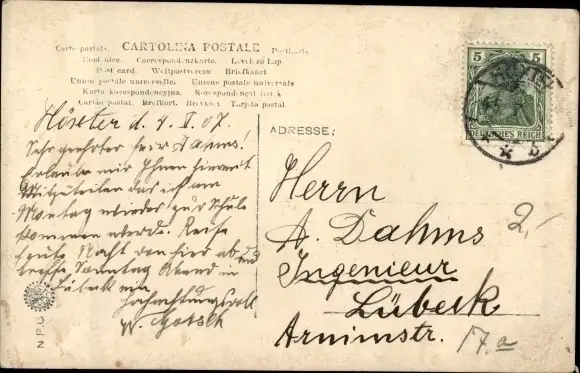 Carte postale. CARTOLINA POSTALE Postkarte
Correspondenzkarte. Levelező Lap.
Post card. Weltpostverein Briefkaart
Union postale universelle. Unione postale universale
Karta korespondencyjna.
Cartão postal. Brefkort. Brevkort Tarjeta postal
Höxter d. 4. V. 07.
Sehr geehrter Herr Dahms!
Erlaube mir Ihnen hiermit
Mitzuteilen das ich am
Montag wieder zur Schule
kommen werde. Reise
heute Nacht von hier ab und
treffe Sonntag Abend in
Lübeck ein
Hochachtungsvoll
W.
N.P.G.
ADRESSE:
Herrn
A. Dahms
Ingenieur
Lübeck
Arnimstr. 17.a
2,-
5 5
DEUTSCHES REICH